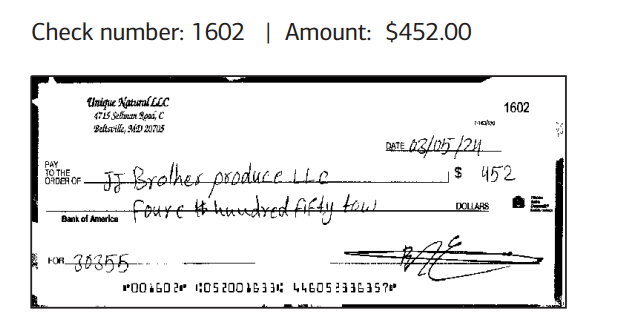 Check number: 1602 | Amount: $452.00
Unique Natural LLC
4715 Sellman Road, C
Beltsville, MD 20705
1602
DATE 03/05/24
PAY
TO THE
ORDER OF JJ Brother produce LLC $ 452
Foure hundred fifty tow DOLLARS
Bank of America
FOR 30355
⑈001602⑈ ⑆052001633⑆ 446052336357⑈